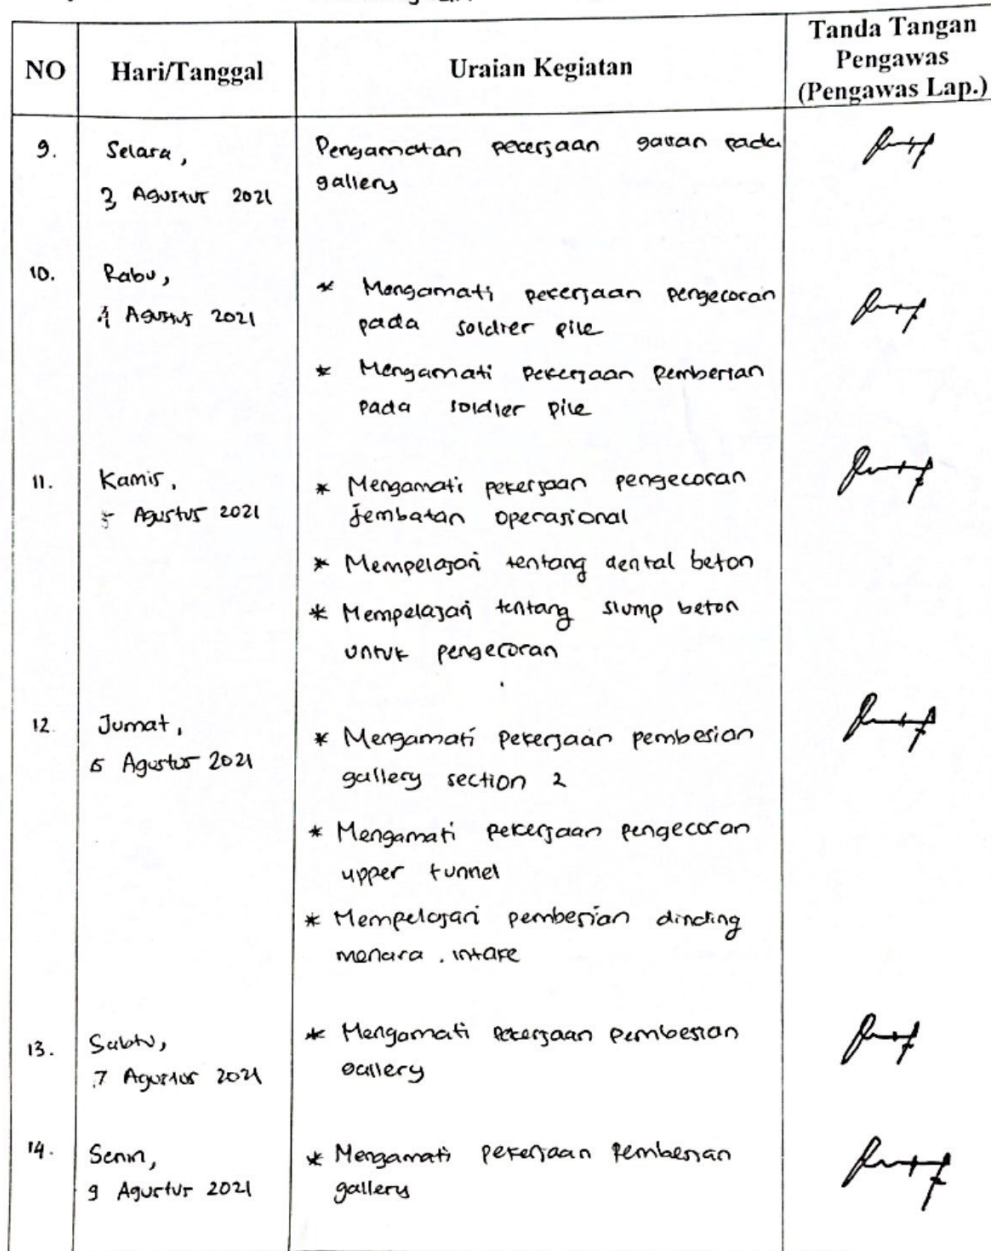 NO Hari/Tanggal Uraian Kegiatan Tanda Tangan
Pengawas
(Pengawas Lap.)
9. Selasa, Pengamatan pekerjaan galian pada
3 Agustus 2021 gallery
10. Rabu,
4 Agustus 2021
* Mengamati pekerjaan pengecoran
pada soldier pile
* Mengamati pekerjaan pembesian
pada soldier pile
11. Kamis,
5 Agustus 2021
* Mengamati pekerjaan pengecoran
jembatan operasional
* Mempelajari tentang dental beton
* Mempelajari tentang slump beton
untuk pengecoran
12. Jumat,
6 Agustus 2021
* Mengamati pekerjaan pembesian
gallery section 2
* Mengamati pekerjaan pengecoran
upper tunnel
* Mempelajari pembesian dinding
menara intake
13. Sabtu,
7 Agustus 2021
* Mengamati pekerjaan pembesian
gallery
14. Senin,
9 Agustus 2021
* Mengamati pekerjaan pembesian
gallery